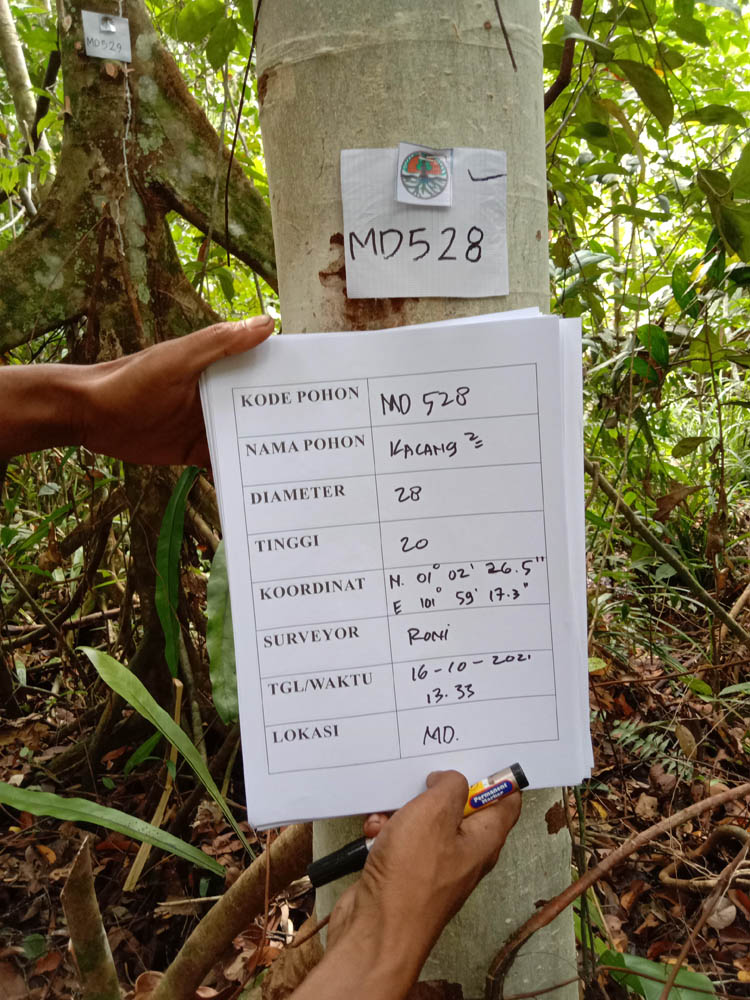 MD529
MD528
KODE POHON MD 528
NAMA POHON KACANG ²=
DIAMETER 28
TINGGI 20
KOORDINAT N. 01° 02' 26.5"
E 101° 59' 17.3"
SURVEYOR RONI
TGL/WAKTU 16-10-2021
13.33
LOKASI MD.
Permanent